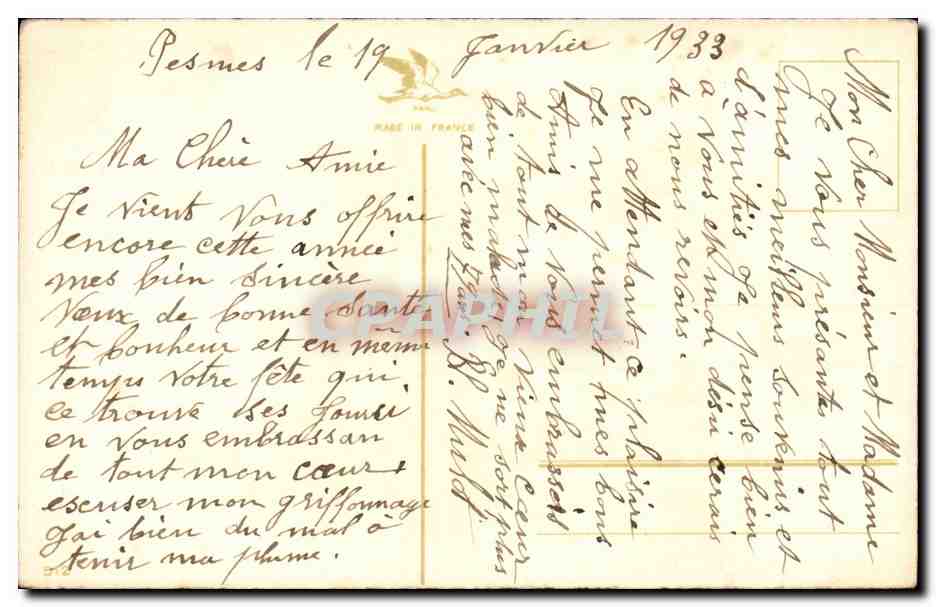 Pesmes le 19 Janvier 1933
MADE IN FRANCE
Ma Chère Amie
Je vient Vous offrire
encore cette année
mes bien sincère
Vœux de bonne Santé
et bonheur et en même
temps Votre fête qui
ce trouve ses jours ci
en Vous embrassan
de tout mon Cœur
escuser mon griffonnage
J'ai bien du mal à
tenir ma plume.
512
Mon Cher Monsieur et Madame
Je Vous présante tout
mes meilleur souvenirs et
d'amitiés Je pense bien
a Vous et mon désir cerais
de nous revoirs.
En attendant ce plaisire
Je me permet mes bons
Amis de Vous embrasser
de tout mon Vieux Cœur
bien malade je ne sort plus
avec mes
CPAPHIL